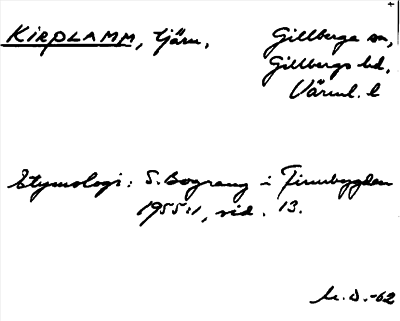 KIRPLAMM, tjärn,
Gillberga sn,
Gillbergs hd,
Värml. l
Etymologi: S. Bograng i Finnbygden
1955:1, sid. 13.
-62